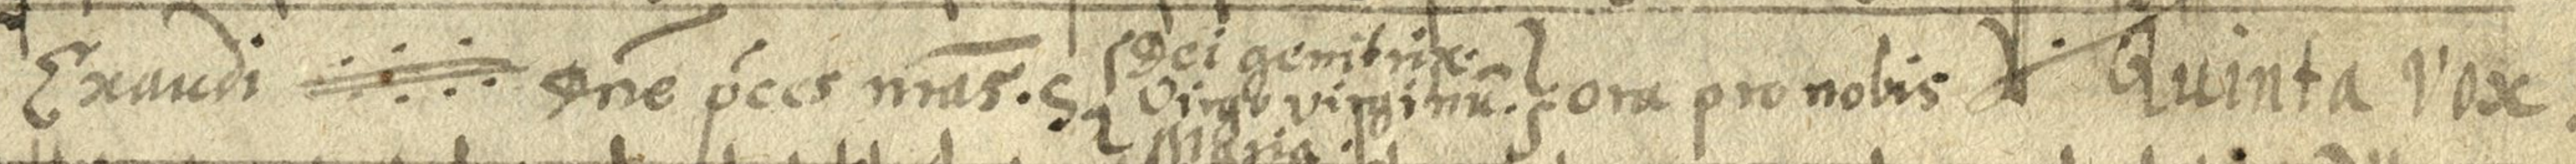 Exaudi Dñe p̄ces nr̄as. S. { Dei genitrix.
Virgo virginū.
Maria. } ora pro nobis Quinta vox